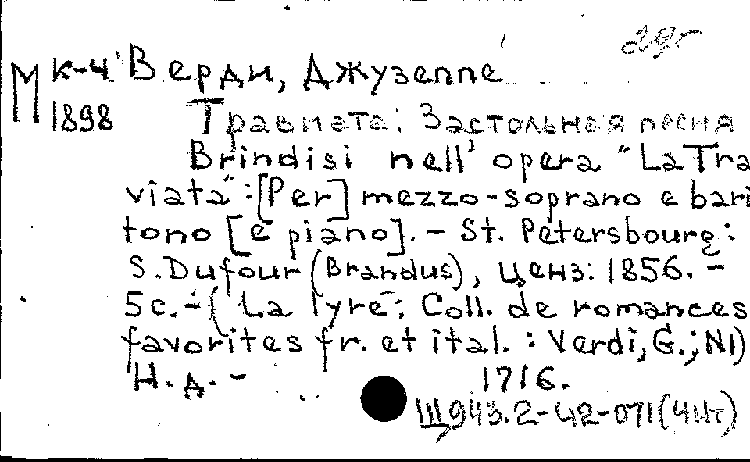 29г
М К-4 Верди, Джузеппе
1898 Травиата: Застольная песня
Brindisi nell' opera "La Tra
viata" : [Per] mezzo-soprano e bari
tono [e piano]. - St. Petersbourg:
S. Dufour (Brandus), ценз: 1856. -
5с. - ( La lyre : Coll. de romances
favorites fr. et ital. : Verdi, G.; N1)
Н.д. - 1716.
Щ943.2-42-071(4Ит)